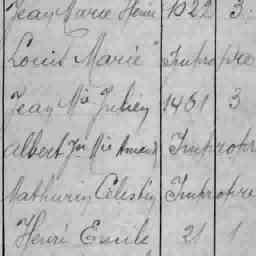 Jean Marie Henri 1022 3
Louis Marie " Impropre
Jean Mie Julien 1461 3
Albert Jn Mie Amand Impropr
Mathurin Célestin Impropre
Henri Emile 21 1